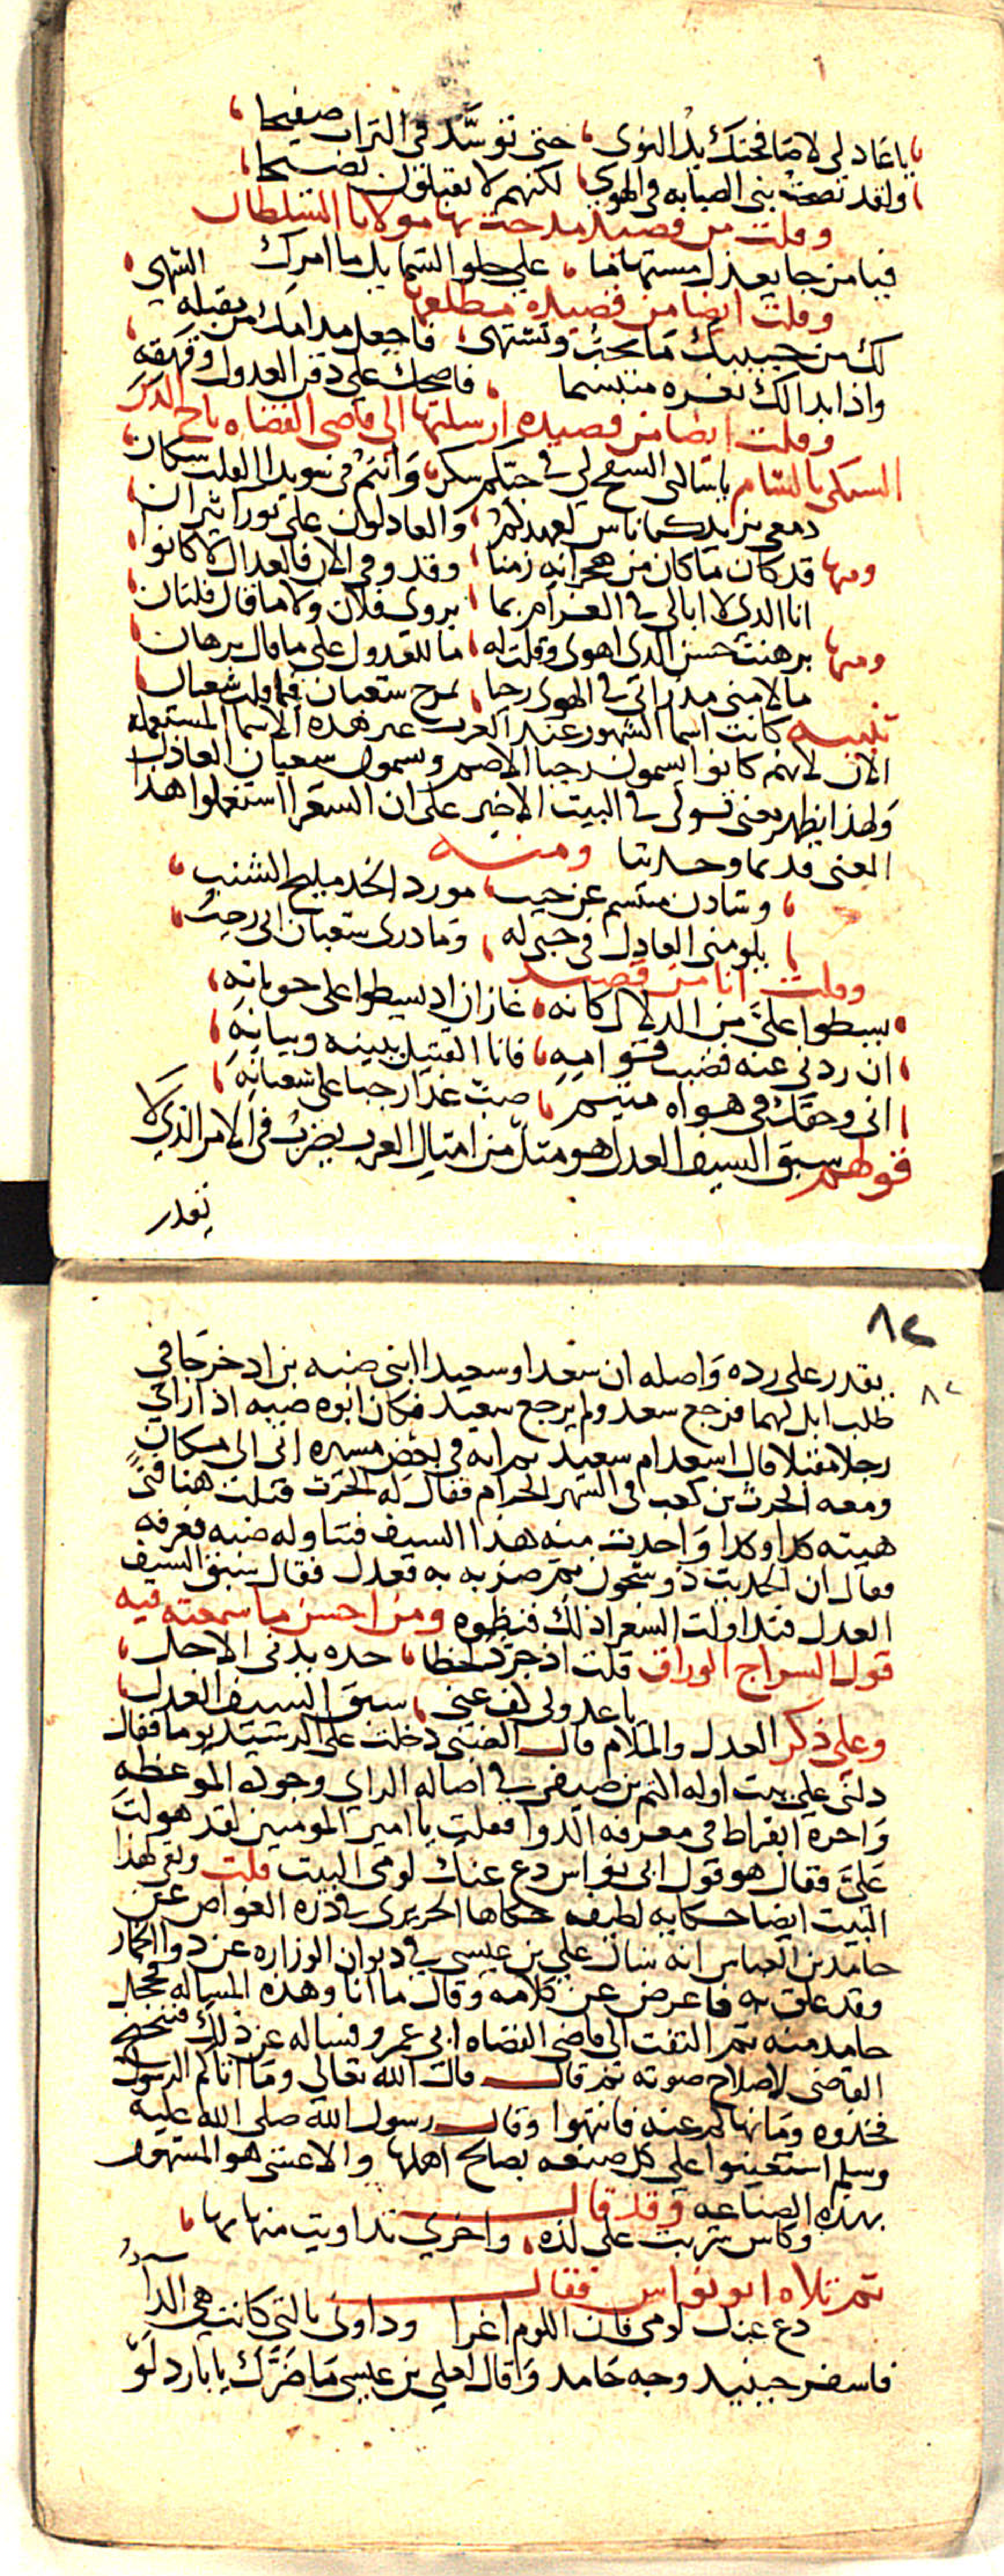 يا عاذلي لا صافحتك يد النوى حتى توسد في التراب صفيحا
ولقد نصحت بني الصبابه في الهوى لكنهم لا يقبلون نصيحا
وقلت من قصيد مدحت بها مولانا السلطان
فيا من جا يعذل مستهاما على حلو الشمايل ما امرك الشهى
وقلت ايضا من قصيده مطلعها
لك من حبيبك ما تحب وتشتهى فاجعل مدامك من مقبله
واذا بدا لك ثغره متبسما فاضحك على ذقن العدول وقهقه
وقلت ايضا من قصيده ارسلتها الى قاضى القضاه تاج الدين
السبكى بالشام يا سالى السفح لي في حبكم سكن وانتم في سويدا القلب سكان
دمعى يزيد كما ناس لعهدكم والعادلون على ثورا نيران
ومنها قد كان ما كان من هجرانه زمنا وقد وفى الان فالعدال لا كانوا
انا الدى لا ابالى في الغرام بما يروى فلان ولا ما قال فلتان
ومنها برهنت حسن الدى اهوى وقلت له ما للعدول على ما قال برهان
ما لامنى مذ راني في الهوى رجبا
تنبيه كانت اسما الشهور عند العرب غير هذه الاسما المستعمله
الان لانهم كانوا يسمون رجبا الاصم ويسمون شعبان العاذل
ولهذا يظهر معنى قولى في البيت الاخير على ان الشعرا استعملوا هذا
المعنى قديما وحديثا ومنه
وشادن مبتسم عن حبب مورد الخد مليح الشنب
يلومنى العادل في حبى له وما درى شعبان انى رجب
وقلت انا من قصيد
يسطوا على من الدلال كانه غازان اذ يسطوا على حوباته
ان ردنى عنه قضيب قوامه فانا القتيل ببينه وبيانه
انى وحقك في هواه متيم صب غدا رجبا على شعبانه
قولهم سبق السيف العدل هو مثل من امثال العرب يضرب في الامر الذي لا
يقدر
٨٢
٨٢
يقدر على رده واصله ان سعدا وسعيدا ابنى ضبه بن اد خرجا في
طلب ابل لهما فرجع سعد ولم يرجع سعيد فكان ابوه ضبه اذا راى
رجلا مقبلا قال اسعد ام سعيد ثم انه في بعض مسيره اتى الى مكان
ومعه الحرث بن كعب في الشهر الحرام فقال له الحرث قتلت هنا فتى
هيته كذا وكذا واخدت منه هذا السيف فتناوله ضبه فعرفه
فقال ان الحديث ذو شجون ثم ضربه به فعدل فقال سبق السيف
العدل فتداولت الشعرا ذلك فنظموه ومن احسن ما سمعته فيه
قول السراج الوراق قلت اذ جرد لحظا حده يدنى الاجل
يا عدولى كف عنى سبق السيف العدل
وعلى ذكر العدل والملام قال الضبى دخلت على الرشيد يوما فقال
دلنى على بيت اوله اكثم بن صيفى في اصاله الراي وجوده الموعظه
واخره ابقراط في معرفه الدوا فقلت يا امير المومنين لقد هولت
على فقال هو قول ابى نواس دع عنك لومى البيت قلت وفي هذا
البيت ايضا حكايه لطيفه حكاها الحريرى في دره الغواص عن
حامد بن العباس انه سال على بن عيسى في ديوان الوزاره عن دوا الخمار
وقد علق به فاعرض عن كلامه وقال ما انا وهذه المساله فخجل
حامد منه ثم التفت الى قاضى القضاه ابى عمر وفساله عن ذلك فتنحنح
القاضى لاصلاح صوته ثم قال قال الله تعالى وما اتاكم الرسول
فخذوه وما نهاكم عنه فانتهوا وقال رسول الله صلى الله عليه
وسلم استعينوا على كل صنعه بصالح اهلها والاعشى هو المشهور
بهذه الصناعه وقد قال
وكاس شربت على لذه واخرى تداويت منها بها
ثم تلاه ابو نواس فقال
دع عنك لومى فان اللوم اغرا وداونى بالتي كانت هي الدآ
فاسفر حينيد وجه حامد وقال لعلي بن عيسى ما ضرك يا بارد لو